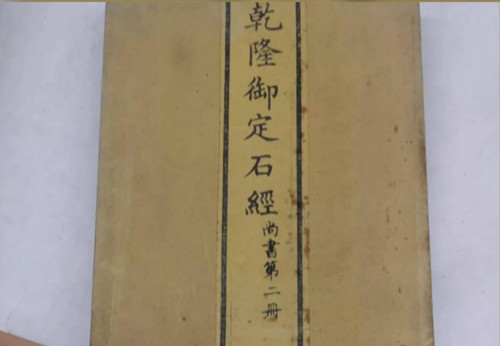 乾隆御定石經尚書第二冊